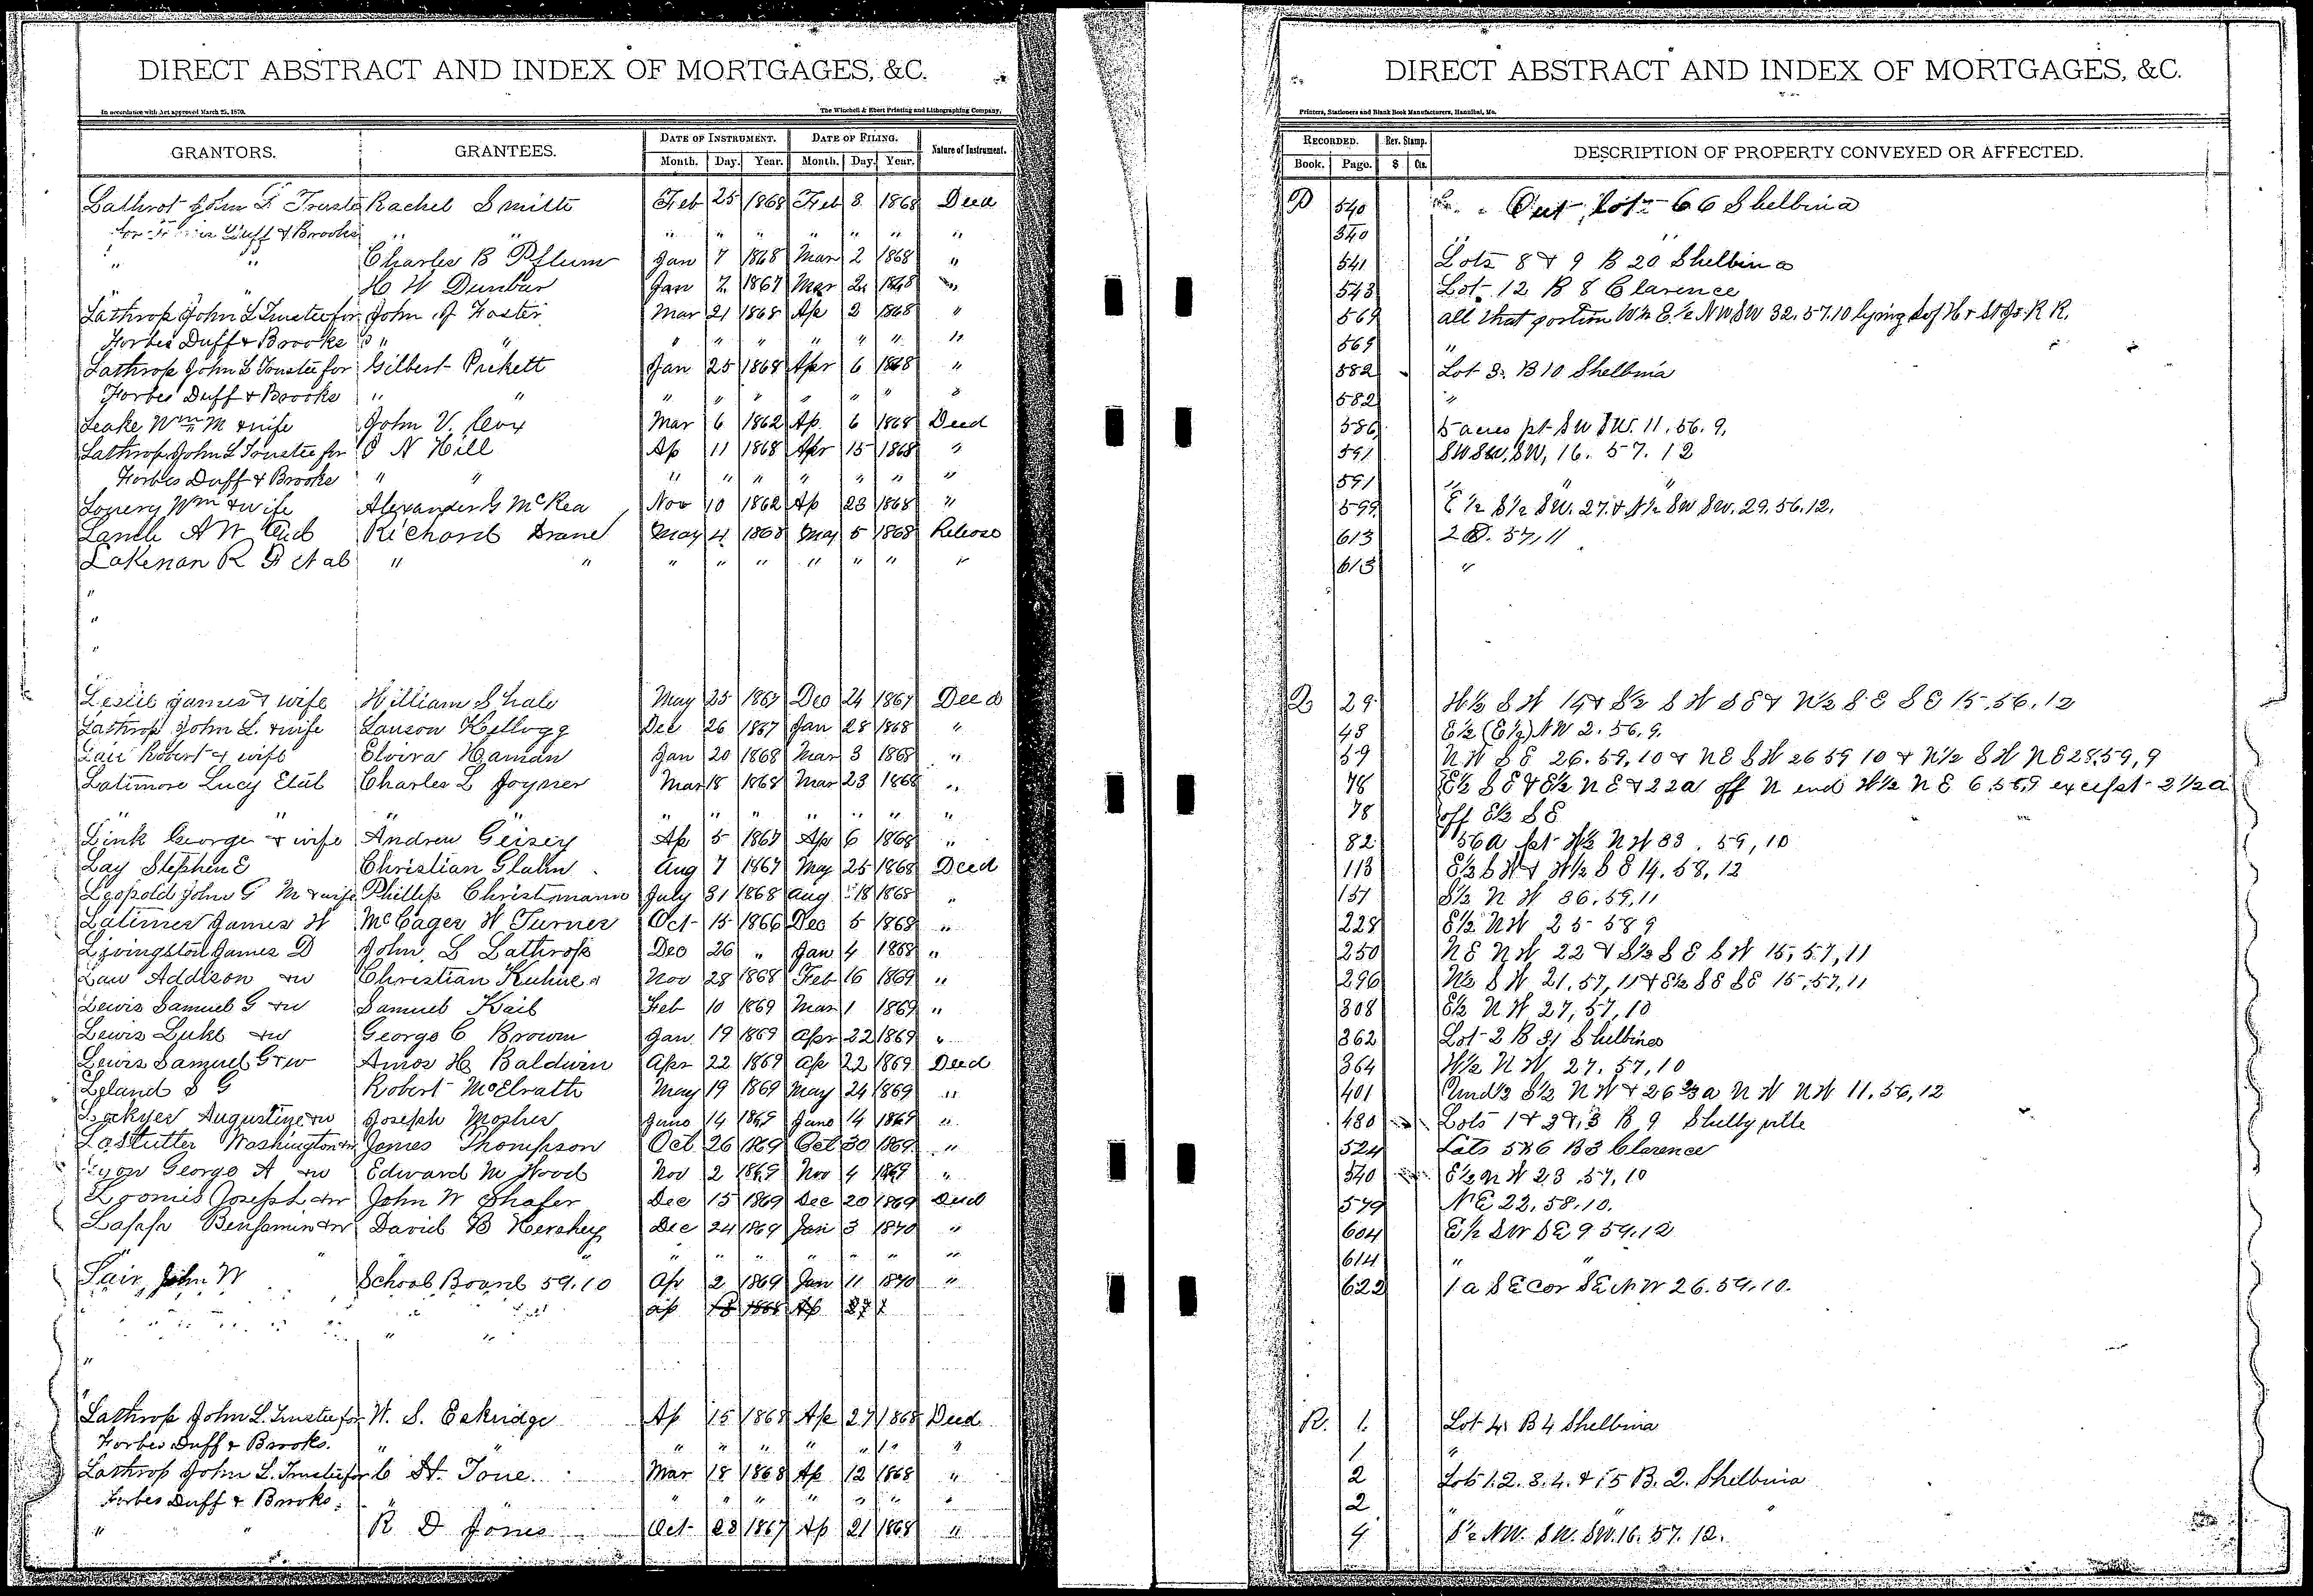 DIRECT ABSTRACT AND INDEX OF MORTGAGES, &C.
In accordance with Act approved March 25, 1870. The Winchell & Ebert Printing and Lithographing Company,
GRANTORS. GRANTEES. DATE OF INSTRUMENT. DATE OF FILING. Nature of Instrument.
Month. Day. Year. Month. Day. Year.
Lathrop John L Trustee Rachel Smith Feb 25 1868 Feb 8 1868 Deed
for Duff & Brooks " " " " " " " " "
" " Charles B Pflum Jan 7 1868 Mar 2 1868 "
" " H W Dunbar Jan 7 1867 Mar 2 1868 "
Lathrop John L Trustee for John J Foster Mar 21 1868 Ap 2 1868 "
Forbes Duff & Brooks " " " " " " " " "
Lathrop John L Trustee for Gilbert Pickett Jan 25 1868 Apr 6 1868 "
Forbes Duff & Brooks " " " " " " " " "
Leake Wm M & wife John V. Mar 6 1862 Ap 6 1868 Deed
Lathrop John L Trustee for N Hill Ap 11 1868 Apr 15 1868 "
Forbes Duff & Brooks " " " " " " " " "
Lowery Wm & wife Alexander G McRea Nov 10 1862 Ap 23 1868 "
A W Richard Drane May 4 1868 May 5 1868 Release
Lakenan R F et al " " " " " " " " "
"
"
"
Leslie James & wife William S Hale May 25 1867 Dec 24 1867 Deed
Lathrop John L. & wife Lauson Kellogg Dec 26 1867 Jan 28 1868 "
Lair Robert & wife Elvira Haman Jan 20 1868 Mar 3 1868 "
Latimore Lucy Etal Charles L Joyner Mar 18 1868 Mar 23 1868 "
" " " " " " " " "
Link George & wife Andrew Geisey Ap 5 1867 Apr 6 1868 "
Lay Stephen E Christian Glahn Aug 7 1867 May 25 1868 Deed
Leopold John G M & wife Phillip Christmann July 31 1868 Aug 18 1868 "
Latimer James W McCager W Turner Oct 15 1866 Dec 5 1868 "
Livingston James D John L Lathrop Dec 26 " Jan 4 1868 "
Law Addison & w Christian Kuhne Nov 28 1868 Feb 16 1869 "
Lewis Samuel G & w Samuel Kail Feb 10 1869 Mar 1 1869 "
Lewis Luke & w George C Brown Jan 19 1869 Apr 22 1869 "
Lewis Samuel G & w Amos H Baldwin Apr 22 1869 Ap 22 1869 Deed
Leland S G Robert McElrath May 19 1869 May 24 1869 "
Lockyer Augustine & w Joseph Mosher June 14 1869 June 14 1869 "
Lastutter Washington & w James Thompson Oct 26 1869 Oct 30 1869 "
Lyon George A & w Edward M Wood Nov 2 1869 Nov 4 1869 "
Loomis Joseph L & w John W Shafer Dec 15 1869 Dec 20 1869 Deed
Lapp Benjamin & w David B Hershey Dec 24 1869 Jan 3 1870 "
" " " " " " " " "
Lair John W School Board 59.10 Ap 2 1869 Jan 11 1870 "
ap 15 1868 Ap 27
" "
"
"
Lathrop John L. Trustee for W. S. Eskridge Ap 15 1868 Ap 27 1868 Deed
Forbes Duff & Brooks. " " " " " " " "
Lathrop John L. Trustee for C H. Tone. Mar 18 1868 Ap 12 1868 "
Forbes Duff & Brooks. " " " " " " " "
" " R D Jones Oct 23 1867 Ap 21 1868 "
DIRECT ABSTRACT AND INDEX OF MORTGAGES, &C.
Printers, Stationers and Blank Book Manufacturers, Hannibal, Mo.
RECORDED. Rev. Stamp. DESCRIPTION OF PROPERTY CONVEYED OR AFFECTED.
Book. Page. $ Cts.
P 540 Out Lot 66 Shelbina
540 " "
541 Lots 8 & 9 B 20 Shelbina
543 Lot 12 B 8 Clarence
569 all that portion W½ E½ NW SW 32.57.10 lying S of H & St Jo. R R.
569 "
582 Lot 3. B 10 Shelbina
582 "
586 5 acres pt SW SW. 11.56.9.
591 SW SW, SW, 16.57.12
591 " "
599 E½ S½ SW. 27. & N½ SW SW. 29.56.12.
613 28.57.11
613 "
Q 29 W½ SW 14 & S½ SW SE & W½ SE SE 15.56.12
48 E½ (E½) NW 2.56.9.
59 NW SE 26.59,10 & NE SW 26 59 10 & N½ SW NE 28.59,9
78 E½ SE & E½ NE & 22a off N end W½ NE 6.56,9 except 2½a
78 off E½ SE
82 56a pt W½ NW 33.59,10
113 E½ SW & W½ SE 14.58,12
151 S½ NW 36.59,11
228 E½ NW 25-58 9
250 NE NW 22 & S½ SE SW 15,57,11
296 N½ SW 21.57,11 & S½ SE SE 15,57,11
308 E½ NW 27,57,10
362 Lot 2 B 31 Shelbina
364 W½ NW 27.57,10
401 Und½ S½ NW & 26⅔a NW NW 11.56,12
480 Lots 1 & 2 & 3 B 9 Shelbyville
524 Lots 5 & 6 B 3 Clarence
540 E½ NW 23.57,10
579 NE 22.58.10.
604 E½ SW SE 9 59.12
614 " "
622 1 a SE Cor SE NW 26.59.10.
R. 1. Lot 4 B 4 Shelbina
1 "
2 Lots 1.2.3.4. & 15 B. 2. Shelbina
2 " "
4 S½ NW. SW. SW. 16.57.12.